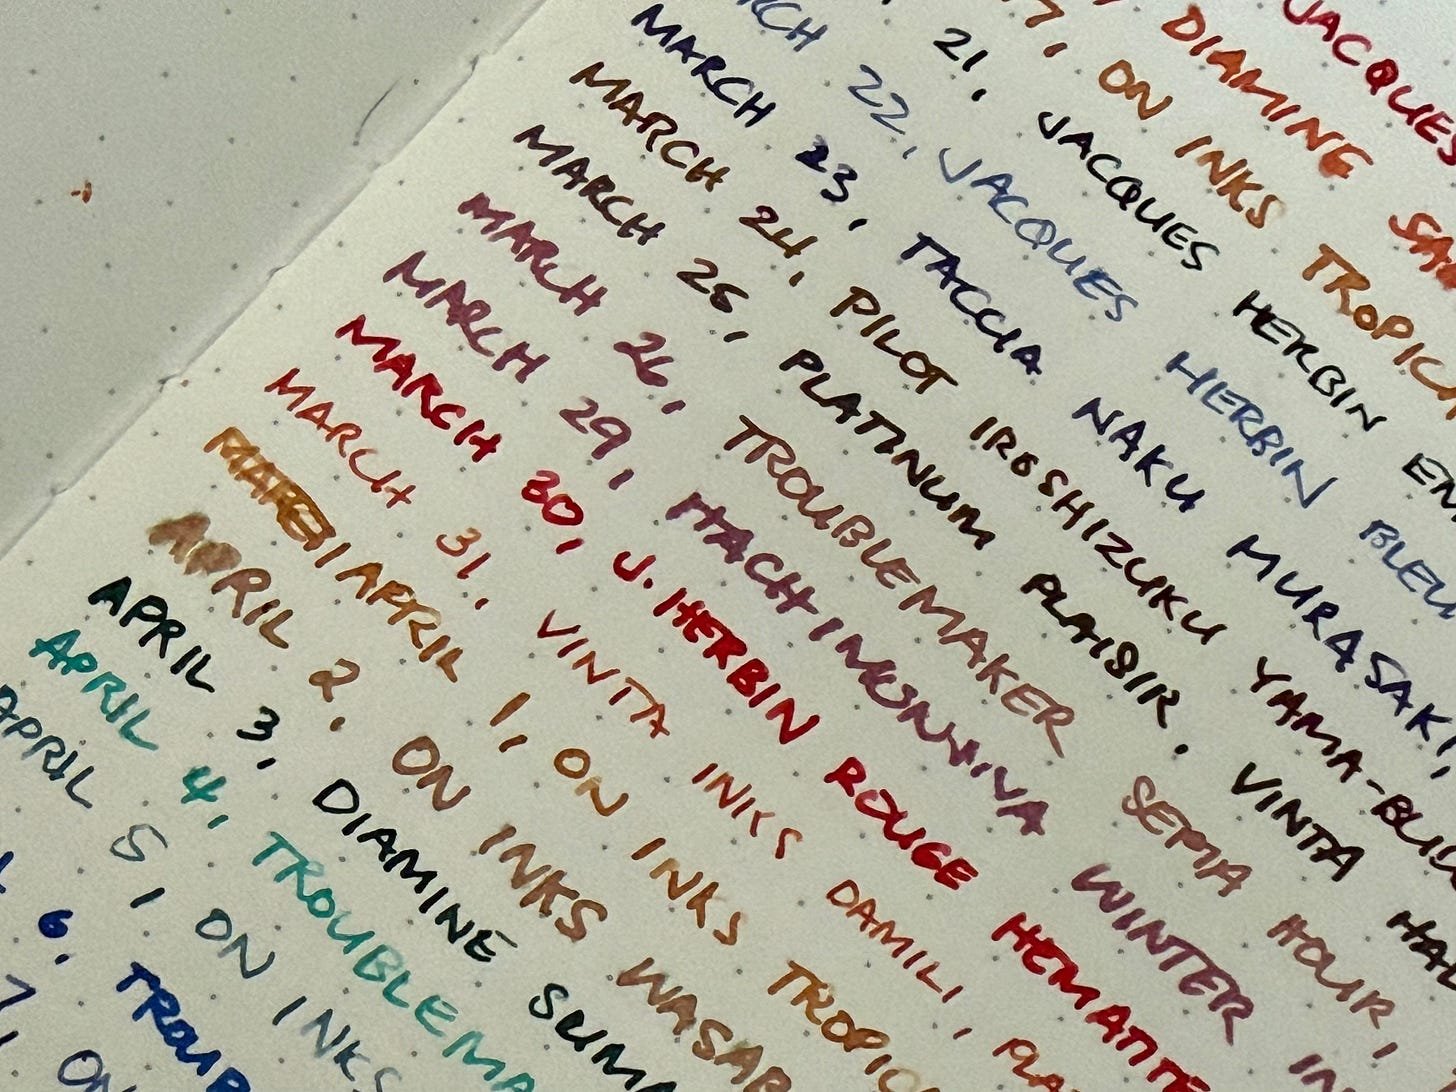 JACQUES
DIAMINE SA
7, ON INKS TROPICA
21, JACQUES HERBIN EM
RCH 22, JACQUES HERBIN BLEU
MARCH 23, TACCIA NAKU MURASAKI,
MARCH 24, PILOT IROSHIZUKU YAMA-BUD
MARCH 25, PLATINUM PLAISIR. VINTA HAL
MARCH 26, TROUBLEMAKER SEPIA HOUR,
MARCH 29, HACHIMONJIYA WINTER IN
MARCH 30, J. HERBIN ROUGE HEMATITE
MARCH 31, VINTA INKS DAMILI, PLA
APRIL 1, ON INKS TROPIC
APRIL 2, ON INKS WASAB
APRIL 3, DIAMINE SUMM
APRIL 4, TROUBLEMA
APRIL 5, ON INKS
6, TROUB
7, ON